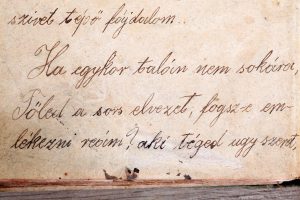 szivet tépő fájdalom..
Ha egykor talán nem sokára,
Tőled a sors elvezet, fogsz-e em-
lékezni reám? aki téged ugy szeret,